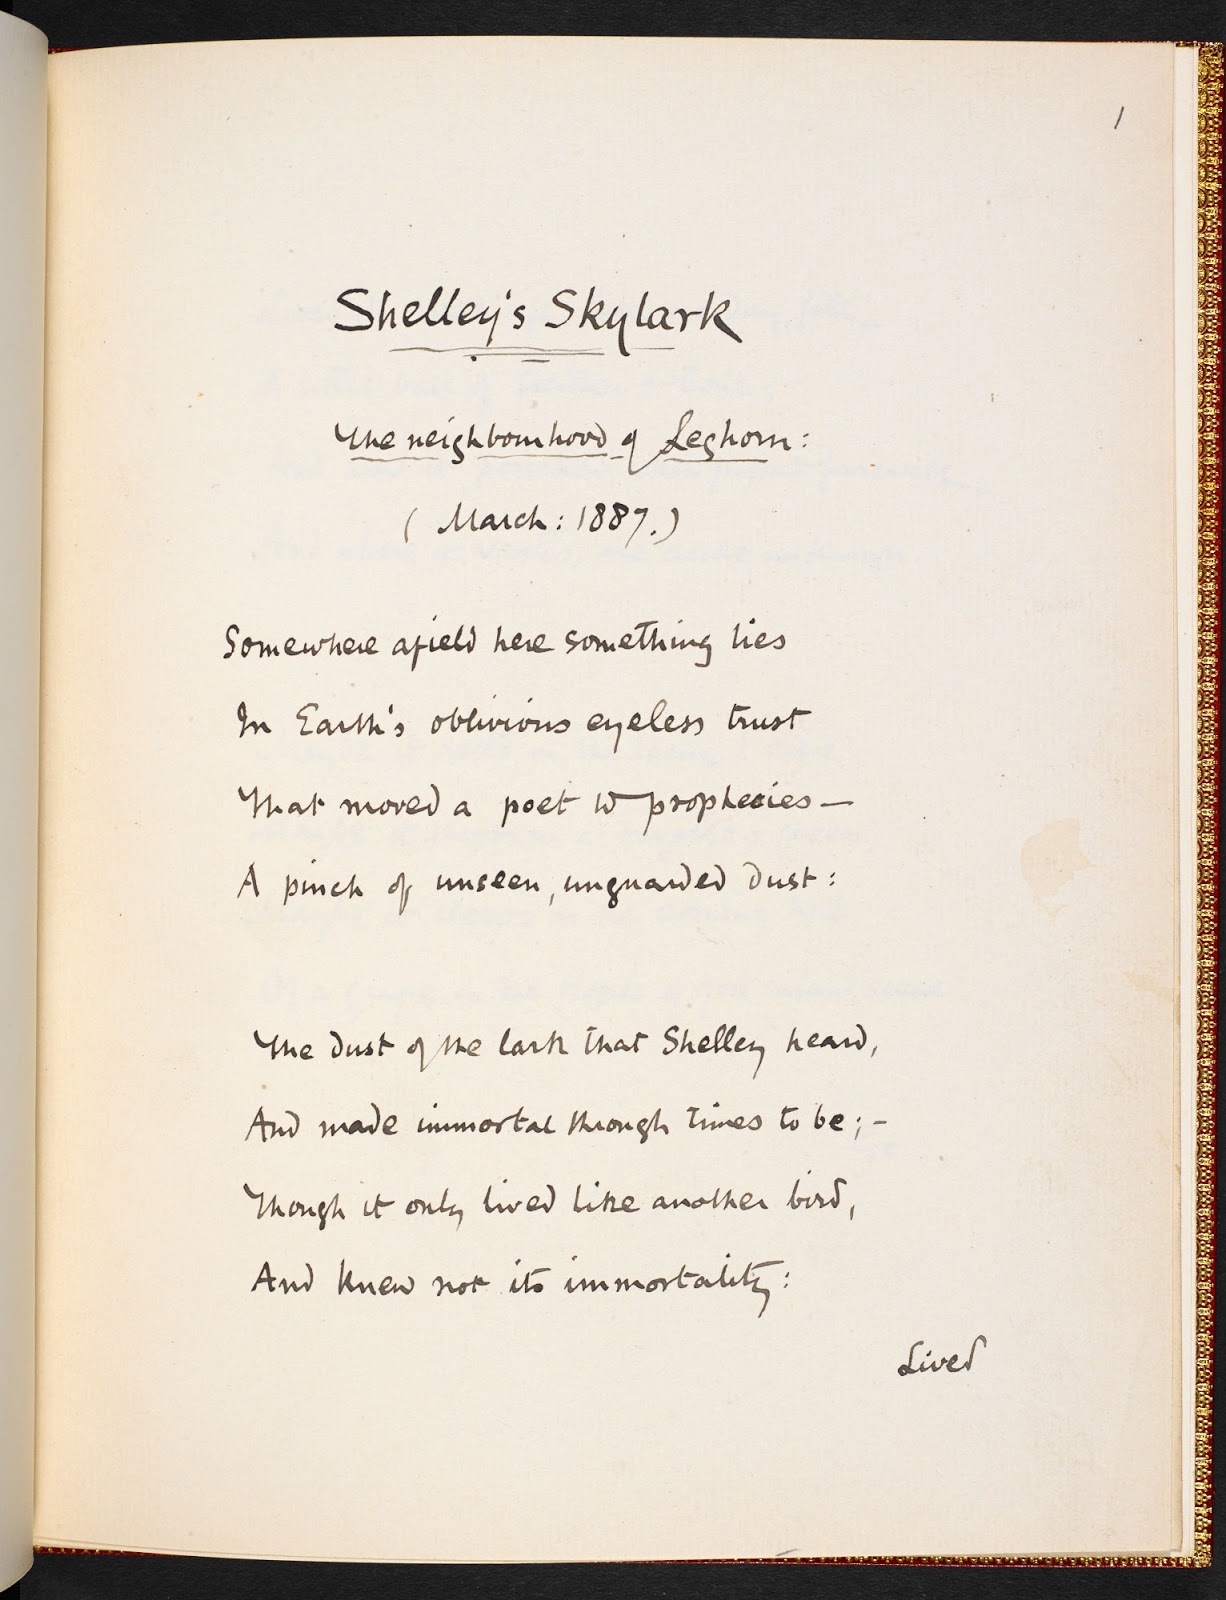 1
Shelley's Skylark
The neighbourhood of Leghorn:
(March: 1887.)
Somewhere afield here something lies
In Earth's oblivious eyeless trust
That moved a poet to prophecies —
A pinch of unseen, unguarded dust:
The dust of the lark that Shelley heard,
And made immortal through times to be; -
Though it only lived like another bird,
And knew not its immortality:
Lived